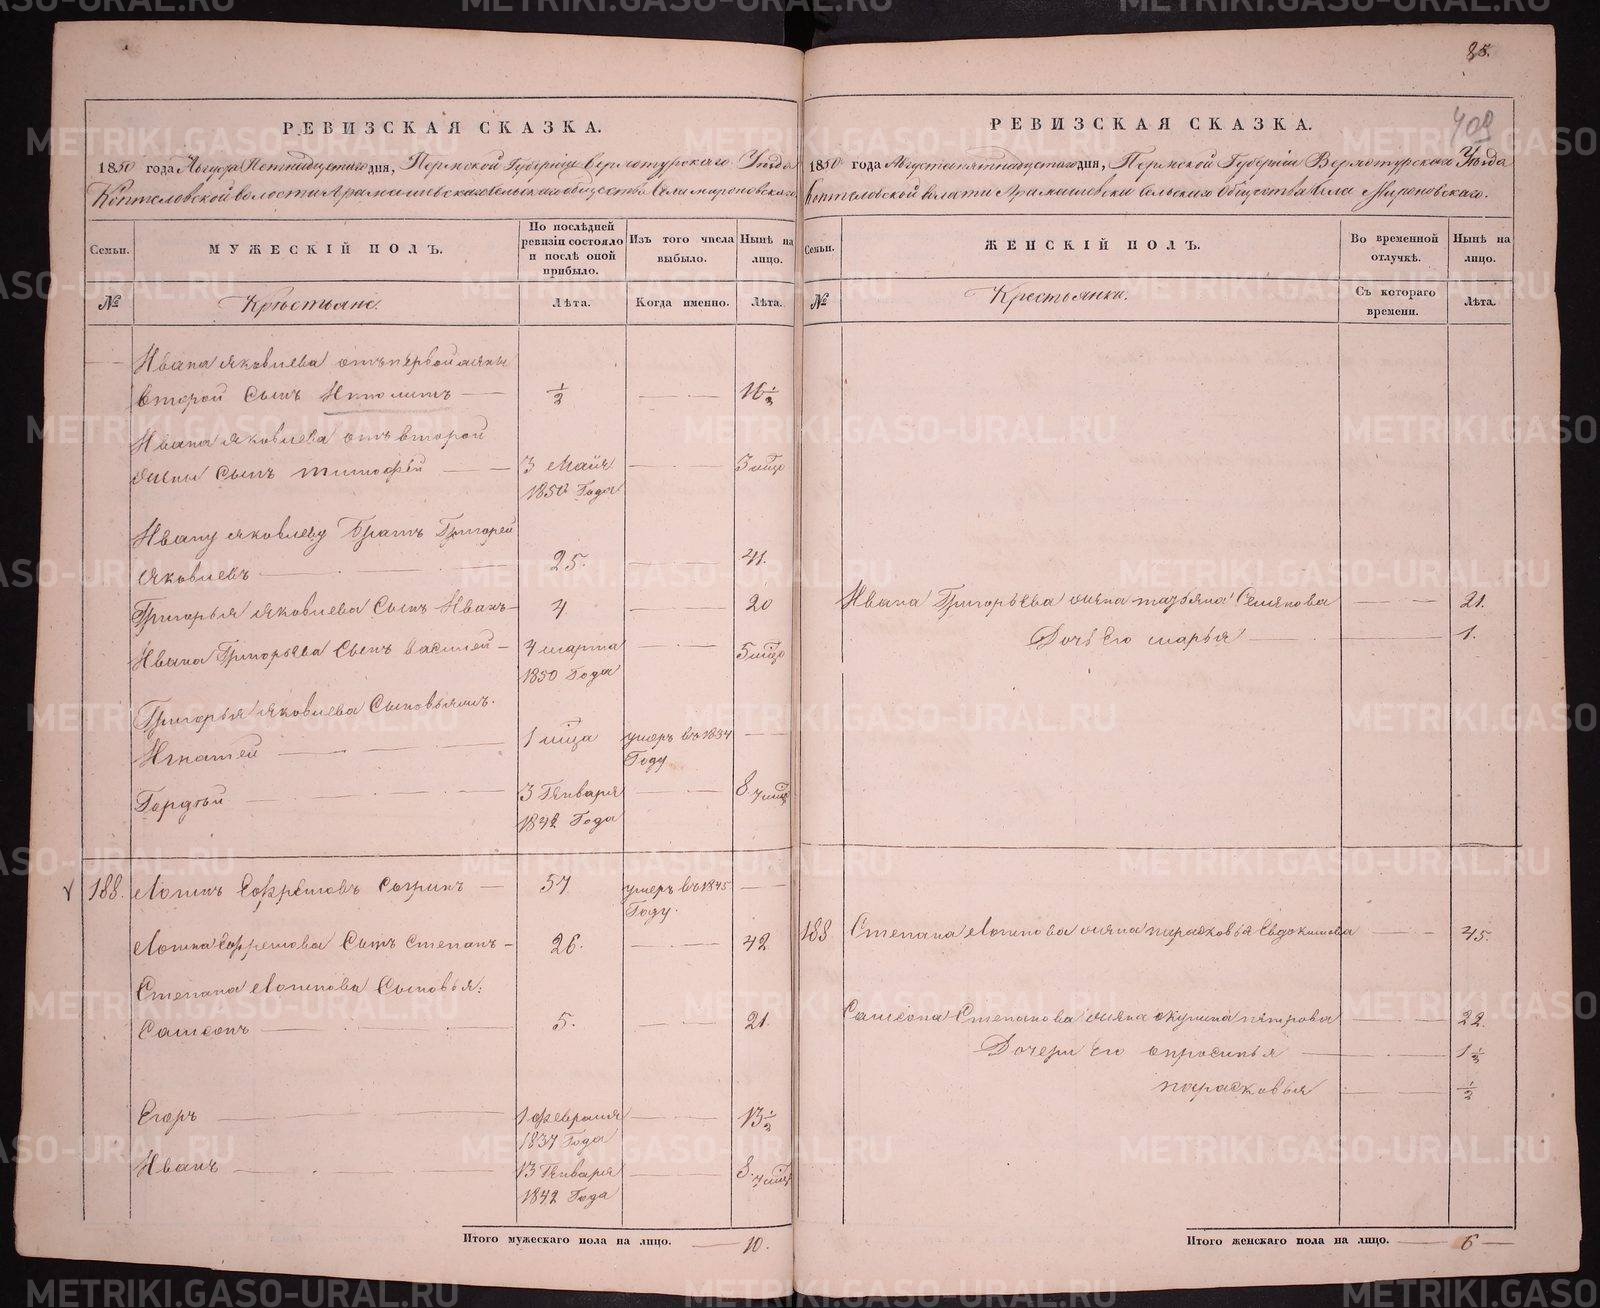 85.
409
РЕВИЗСКАЯ СКАЗКА.
1850 года Августа Пятнадцатаго дня, Пермской Губерніи Верхотурскаго Уѣзда
Коптеловской волости Арамашевскаго сельскаго общества Села Мироновскаго
Семьи.
МУЖЕСКІЙ ПОЛЪ.
По послѣдней ревизіи состояло и послѣ оной прибыло.
Изъ того числа выбыло.
Нынѣ на лицо.
№
Крестьяне.
Лѣта.
Когда именно.
Лѣта.
Ивана Яковлева отъ первой жены
второй сынъ Иполитъ — 1/2 — 16 1/2
Ивана Яковлева отъ второй
жены сынъ Тимофей — 3 Майя — 3 мѣс
1850 Года
Ивану Яковлеву Братъ Григорей
Яковлевъ — 25. — 41.
Григорья Яковлева Сынъ Иванъ — 4 — 20
Ивана Григорьева Сынъ Василей — 4 марта — 5 мѣс
1850 Года
Григорья Яковлева Сыновья
Игнатей — умеръ въ 1834 —
Году
Гордѣй — 3 Генваря — 8
1842 Года
188. Логинъ Ефремовъ — 57 умеръ въ 1845 —
Году.
Логина Ефремова Сынъ Степанъ — 26. — 42
Степана Логинова Сыновья:
Самсонъ — 5. — 21.
Егоръ — 1 февраля — 13 1/2
1837 Года
Иванъ — 13 Генваря — 8
1842 Года
Итого мужескаго пола на лицо. — 10.
РЕВИЗСКАЯ СКАЗКА.
1850 года Августа пятнадцатаго дня, Пермской Губерніи Верхотурскаго Уѣзда
Коптеловской волости Арамашевскаго Сельскаго Общества Села Мироновскаго.
Семьи.
ЖЕНСКІЙ ПОЛЪ.
Во временной отлучкѣ.
Нынѣ на лицо.
№
Крестьянки.
Съ котораго времени.
Лѣта.
Ивана Григорьева жена Татьяна — 21.
Дочь Его Марья — 1.
188 Степана Логинова жена Парасковья Евдокимова — 45.
Самсона Степанова жена Акулина Петрова — 22.
Дочери Его Апросинья — 1 1/2
Парасковья — 1/2
Итого женскаго пола на лицо. — 6 —
METRIKI.GASO-URAL.RU